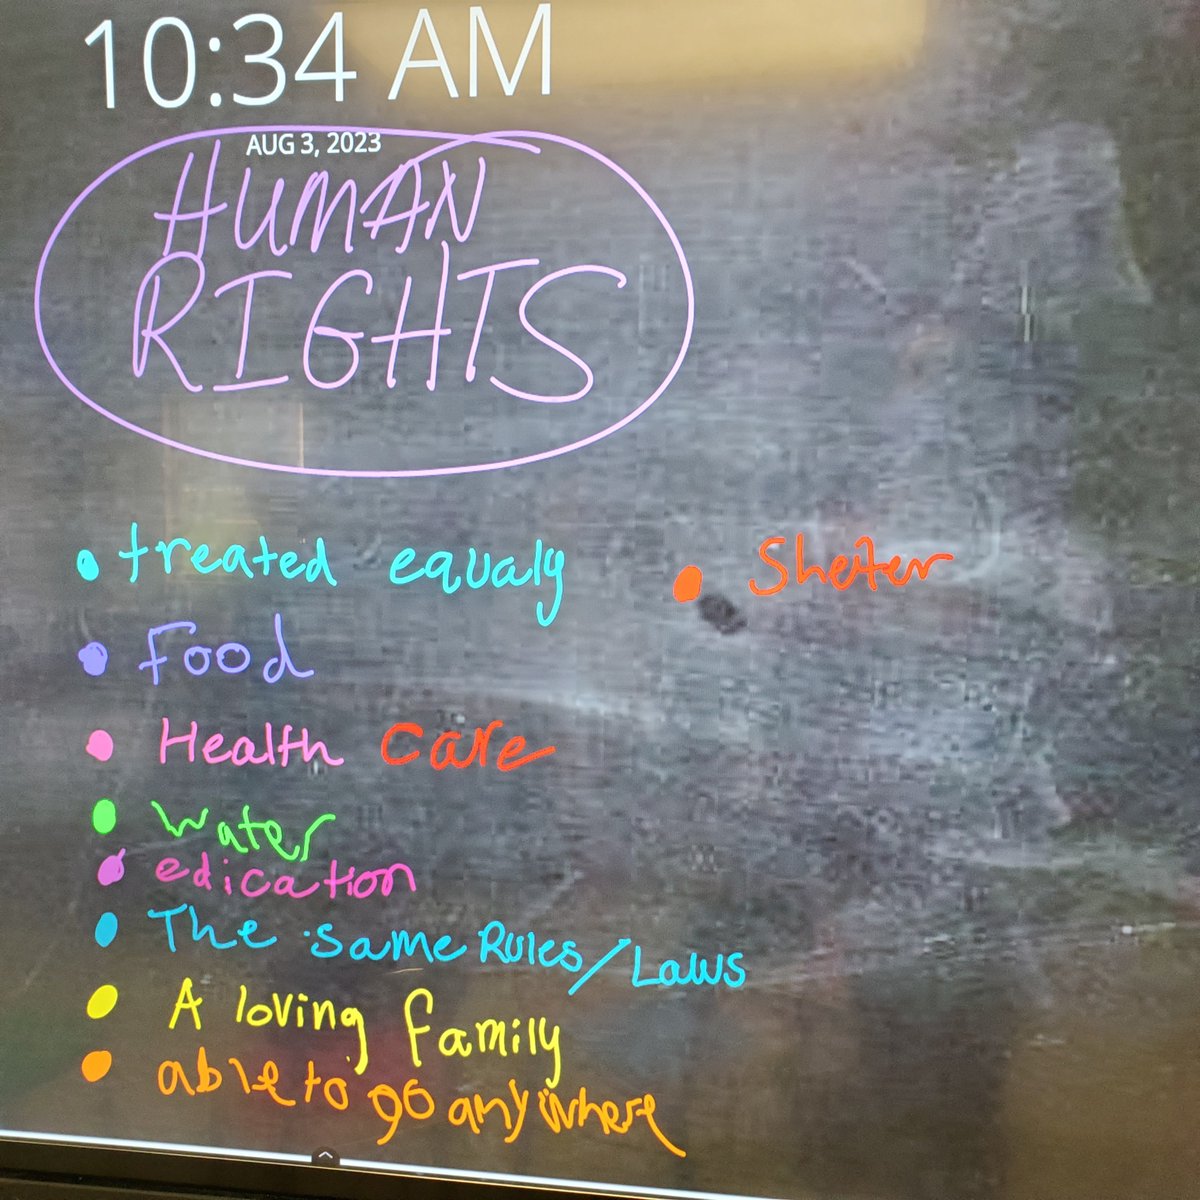 10:34 AM
AUG 3, 2023
HUMAN
RIGHTS
• treated equaly
• Food
• Health care
• water
• edication
• The same Rules/Laws
• A loving family
• able to go anywhere
• Shelter